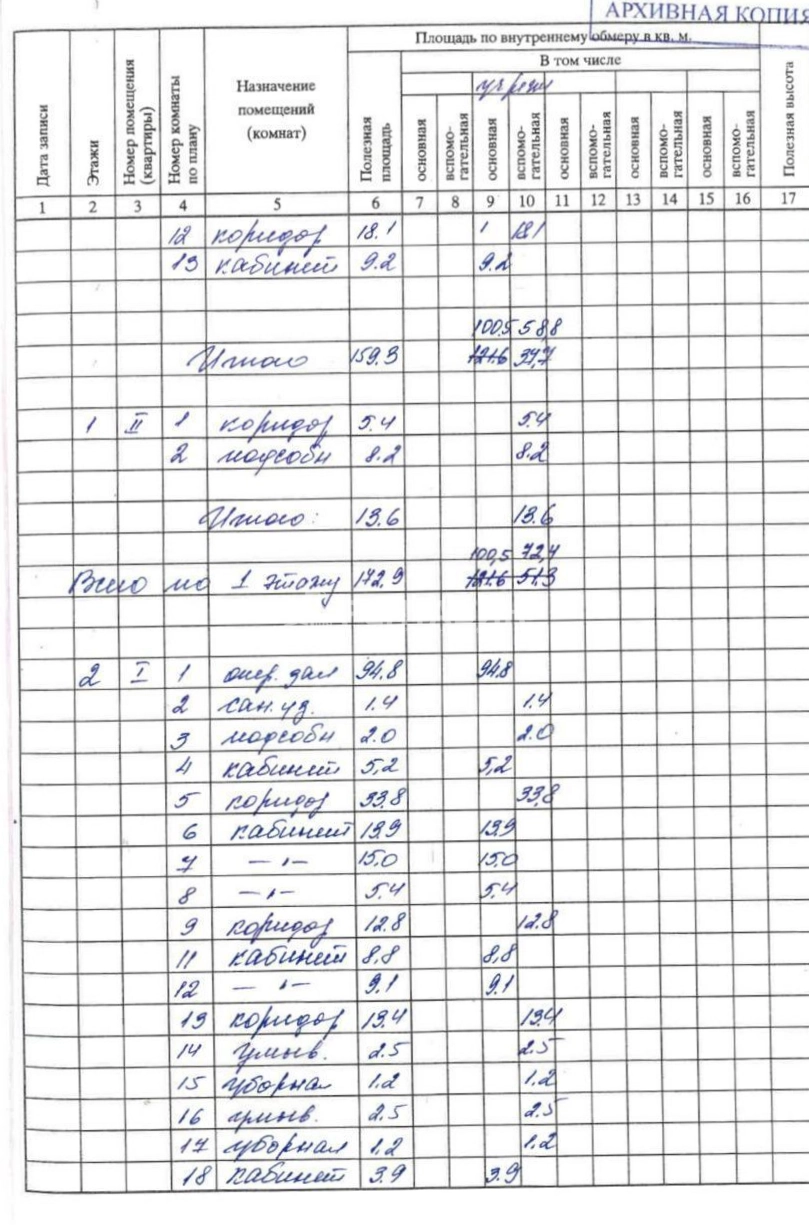 АРХИВНАЯ КОПИЯ
Площадь по внутреннему обмеру в кв. м.
В том числе
Дата записи
Этажи
Номер помещения (квартиры)
Номер комнаты по плану
Назначение помещений (комнат)
Полезная площадь
основная
вспомо-гательная
основная
вспомо-гательная
основная
вспомо-гательная
основная
вспомо-гательная
основная
вспомо-гательная
Полезная высота
1 2 3 4 5 6 7 8 9 10 11 12 13 14 15 16 17
12 коридор 18.1 18.1
13 кабинет 9.2 9.2
100.5 58,8
Итого 159.3 121.6 37,7
1 II 1 коридор 5.4 5.4
2 подсобн 8.2 8.2
Итого: 13.6 13.6
100,5 72,4
Всего по 1 этажу 172,9 121.6 51.3
2 I 1 опер. зал 94.8 94.8
2 сан. уз. 1.4 1.4
3 подсобн 2.0 2.0
4 кабинет 5,2 5,2
5 коридор 33,8 33,8
6 кабинет 13.9 13.9
7 — „ — 15.0 15.0
8 — „ — 5.4 5.4
9 коридор 12.8 12.8
11 кабинет 8,8 8,8
12 — „ — 9.1 9.1
13 коридор 13.4 13.4
14 умыв. 2.5 2.5
15 уборная 1.2 1.2
16 умыв. 2.5 2.5
17 уборная 1.2 1.2
18 кабинет 3.9 3.9